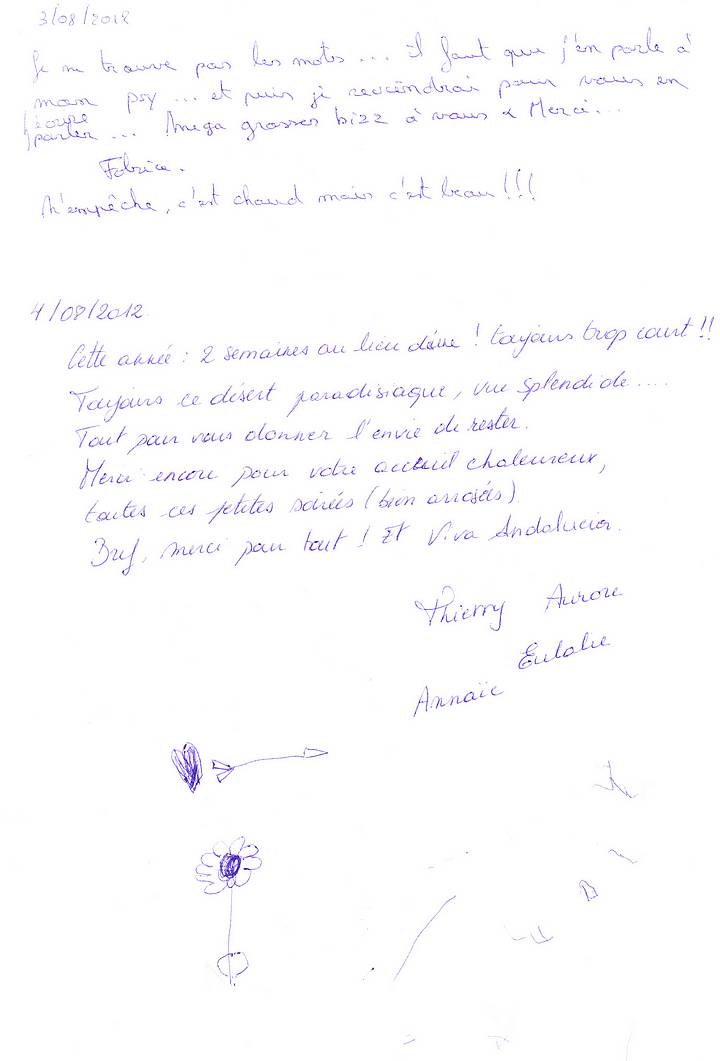 3/08/2012
Je ne trouve pas les mots ... il faut que j'en parle à
mon psy ... et puis je reviendrai pour vous en
écrire
parler ... Omega grosses bizz à vous & Merci...
Fabrice.
N'empêche, c'est chaud mais c'est beau !!!
4/08/2012
Cette année : 2 semaines au lieu d'une ! toujours trop court !!
Toujours ce désert paradisiaque, vue splendide ....
Tout pour vous donner l'envie de rester.
Merci encore pour votre accueil chaleureux,
toutes ces petites soirées (bien arrosées)
Bref, merci pour tout ! Et Viva Andalucia.
Thierry Aurore
Eulalie
Annaïc